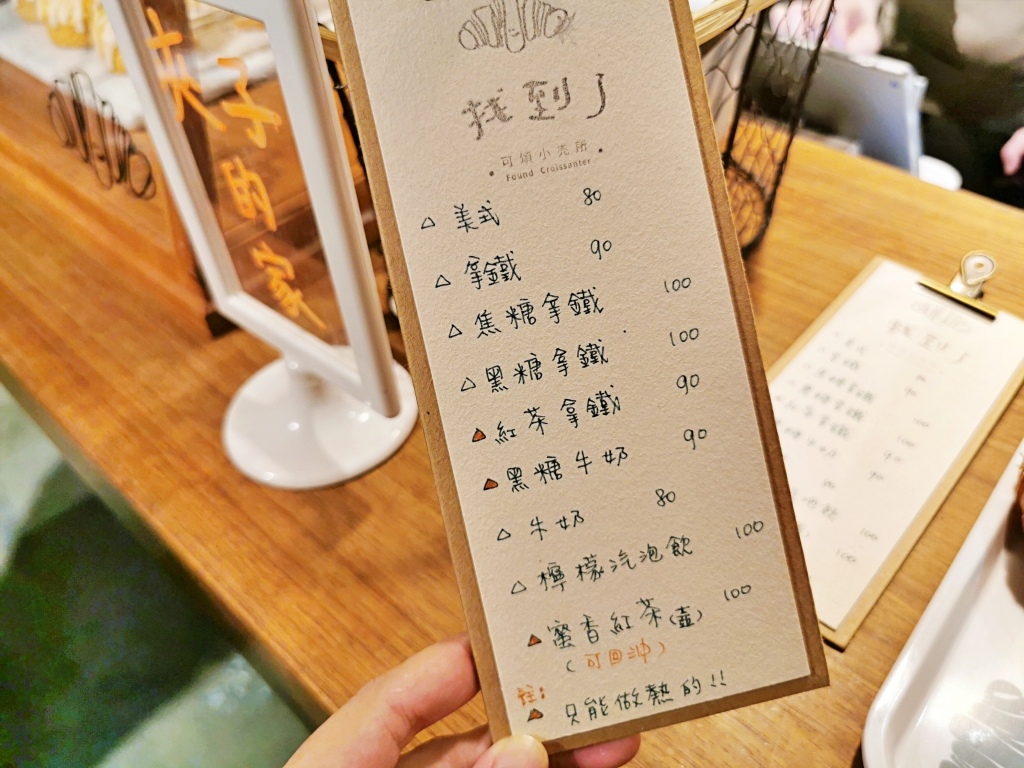 夾子的家
找到了
可頌小売所
Found Croissanter
△ 美式 80
△ 拿鐵 90
△ 焦糖拿鐵 100
△ 黑糖拿鐵 100
▲ 紅茶拿鐵 90
▲ 黑糖牛奶 90
△ 牛奶 80
△ 檸檬汽泡飲 100
▲ 蜜香紅茶(壺) 100
(可回沖)
註:
▲ 只能做熱的!!
找到了
100
100